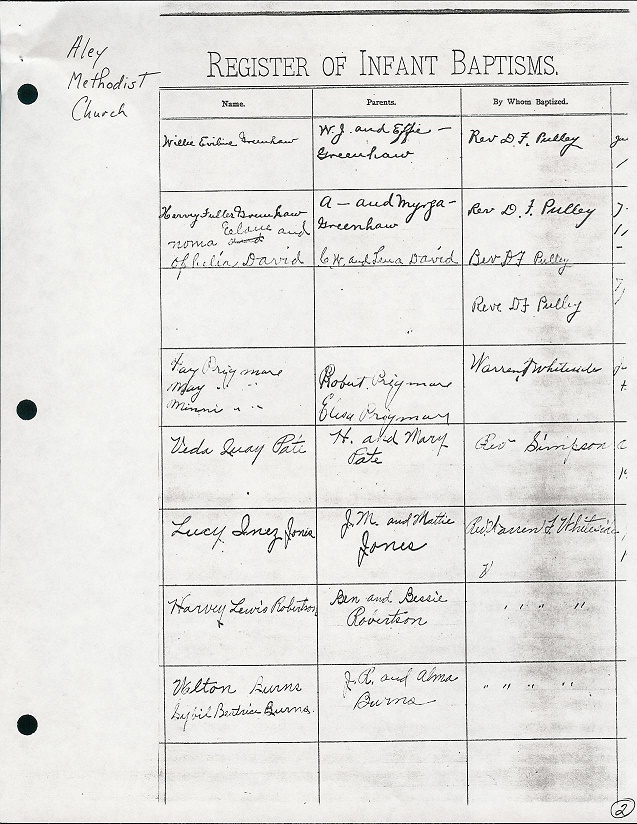 Aley
Methodist
Church
REGISTER OF INFANT BAPTISMS.
Name. Parents. By Whom Baptized.
Willie Eviline Greenhaw W. J. and Effie - Rev D. F. Pulley
Greenhaw
Harvy Fuller Greenhaw A - and Myrza - Rev D. F. Pulley
Greenhaw
Elane and
noma and
Ophelia David C. W. and Lena David Rev D F Pulley
Reve D F Pulley
Fay Prigmore Robert Prigmore Warren Whiteside
May " "
Minni " " Elisa Prigmary
Veda Quay Pate H. and Mary Rev Simpson
Pate
Lucy Inez Jones J. M. and Mattie Rev Warren F Whiteside
Jones
Harvey Lewis Robertson Ben and Bessie " " " "
Robertson
Walton Burns J. R. and Alma " " " "
Sybil Bertrice Burns. Burns
2